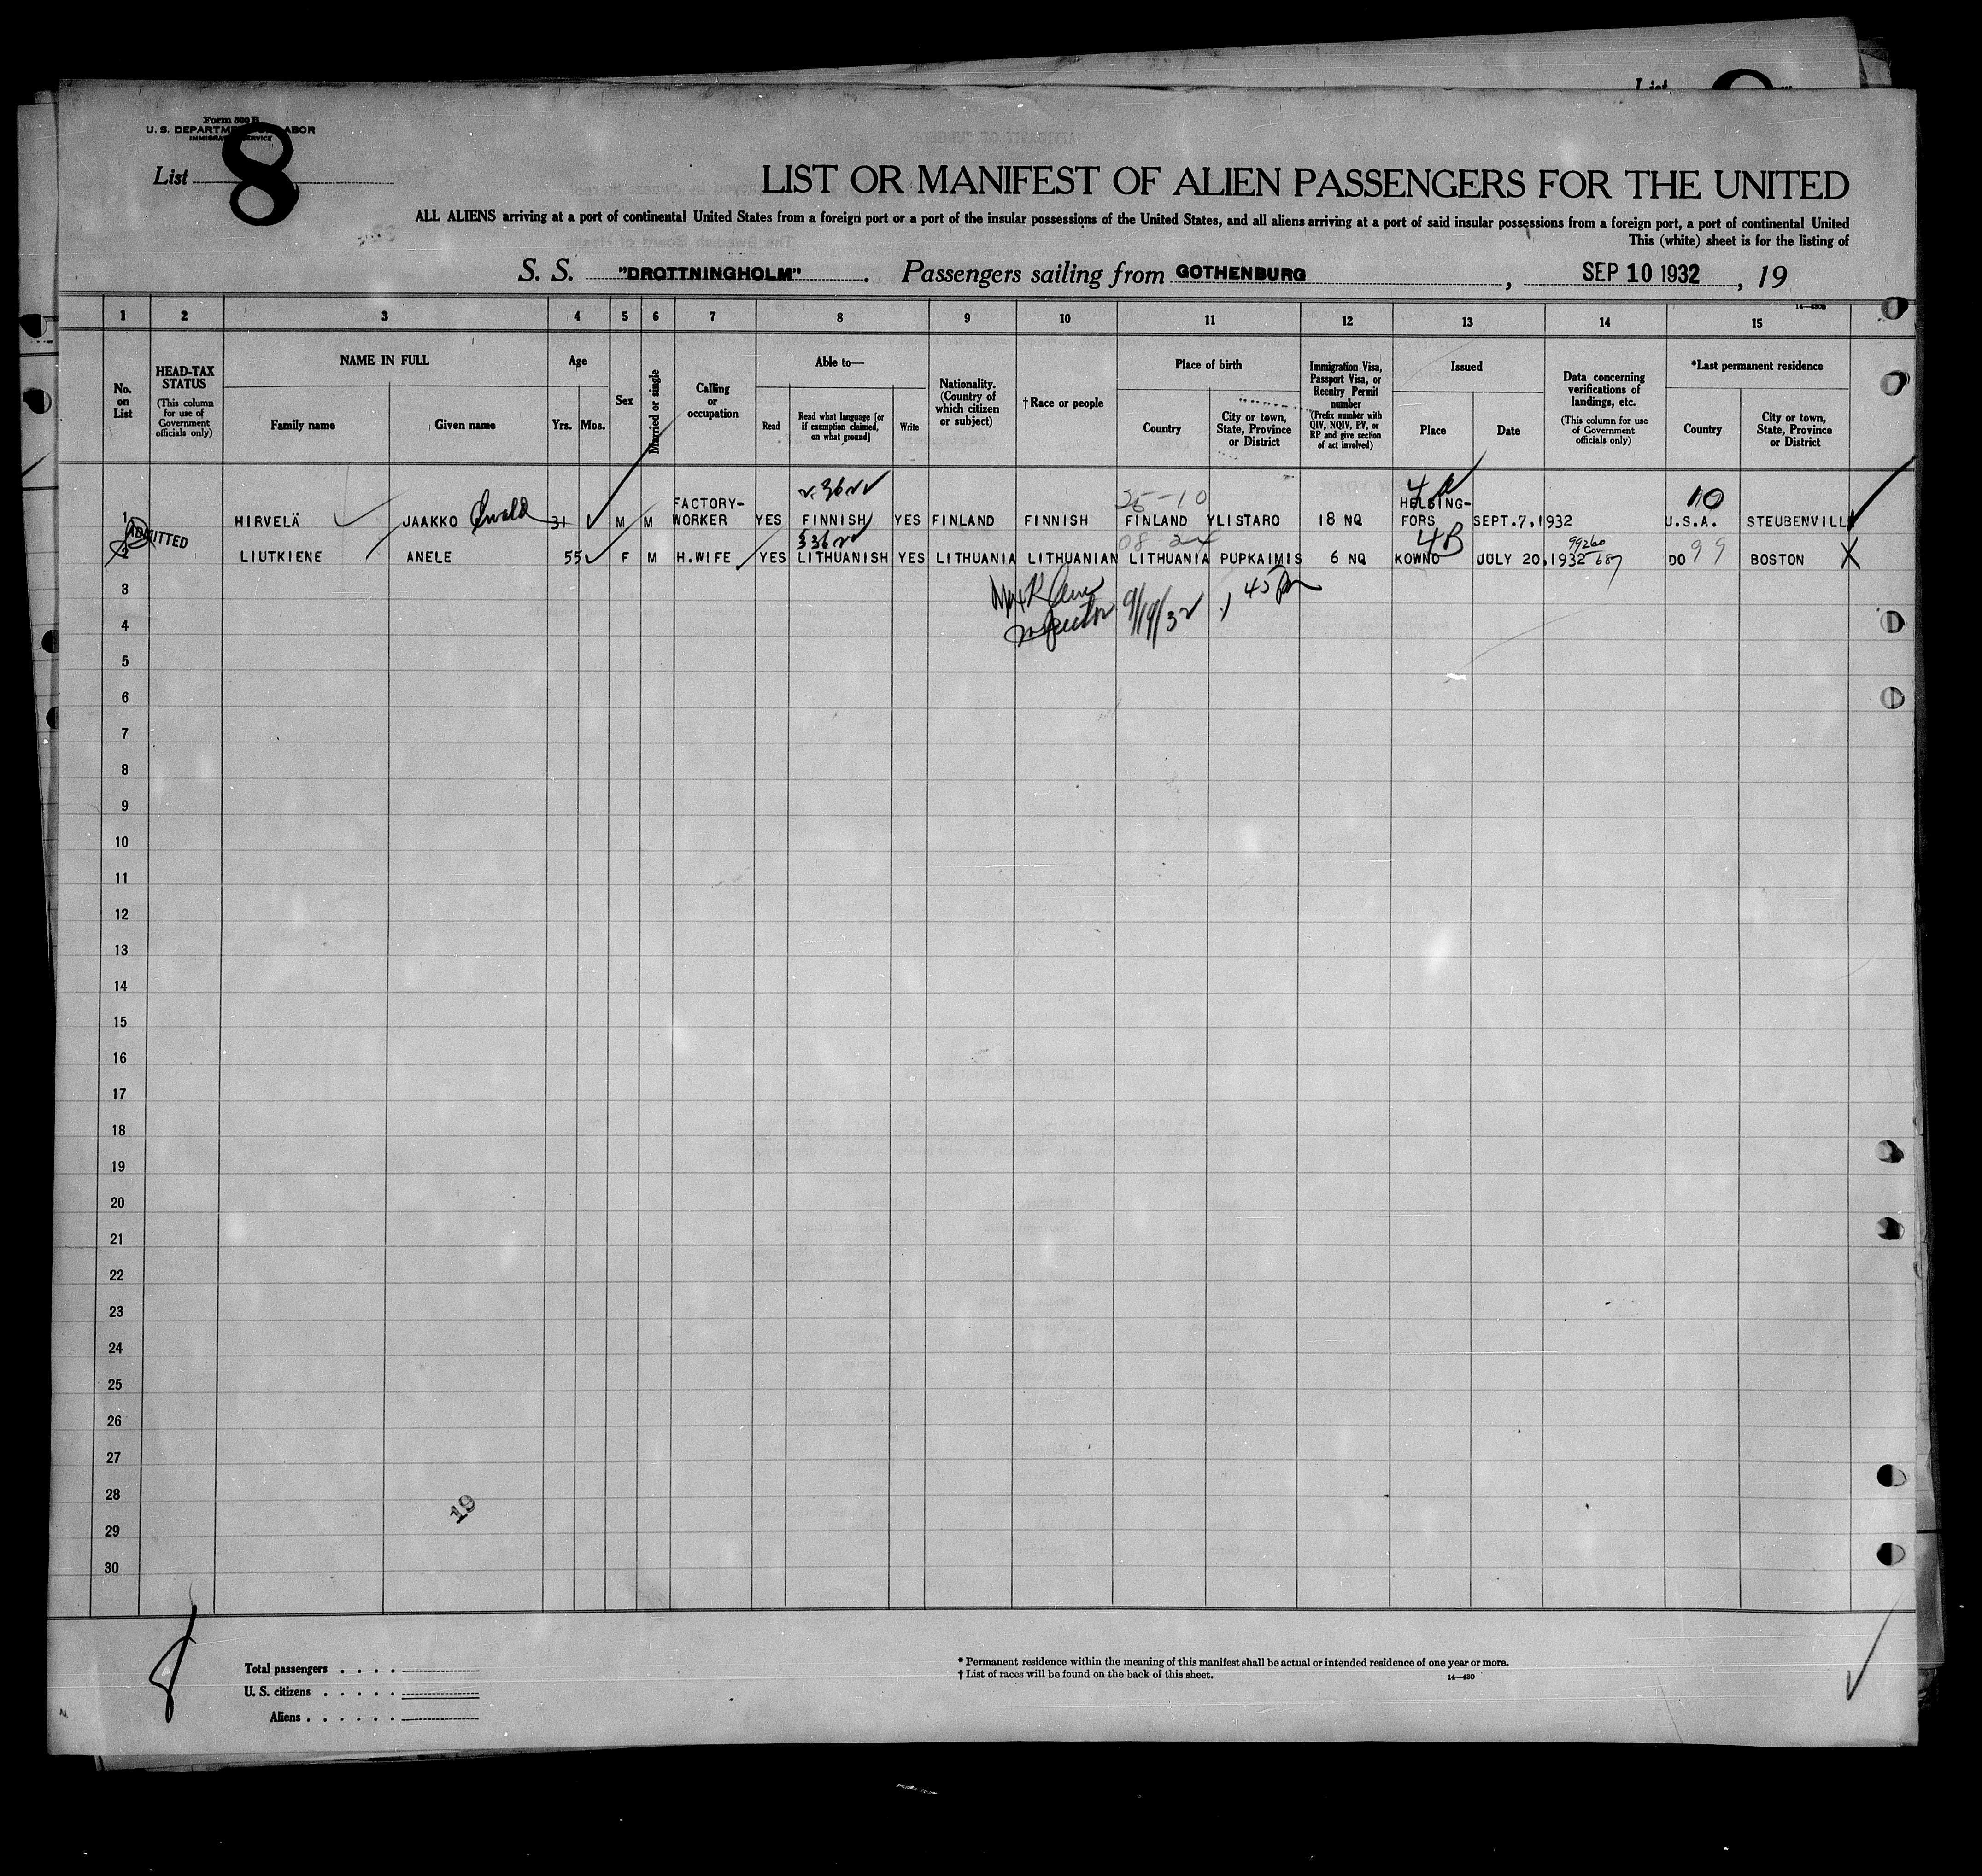 Form 500 B
U. S. DEPARTMENT OF LABOR
IMMIGRATION SERVICE
List 8
List
LIST OR MANIFEST OF ALIEN PASSENGERS FOR THE UNITED
ALL ALIENS arriving at a port of continental United States from a foreign port or a port of the insular possessions of the United States, and all aliens arriving at a port of said insular possessions from a foreign port, a port of continental United
This (white) sheet is for the listing of
S. S. "DROTTNINGHOLM". Passengers sailing from GOTHENBURG, SEP 10 1932, 19
1 2 3 4 5 6 7 8 9 10 11 12 13 14 15
No. on List
HEAD-TAX STATUS (This column for use of Government officials only)
NAME IN FULL
Family name
Given name
Age
Yrs. Mos.
Sex
Married or single
Calling or occupation
Able to—
Read
Read what language [or if exemption claimed, on what ground]
Write
Nationality. (Country of which citizen or subject)
†Race or people
Place of birth
Country
City or town, State, Province or District
Immigration Visa, Passport Visa, or Reentry Permit number (Prefix number with QIV, NQIV, PV, or RP and give section of act involved)
Issued
Place
Date
Data concerning verifications of landings, etc. (This column for use of Government officials only)
*Last permanent residence
Country
City or town, State, Province or District
1 HIRVELÄ JAAKKO 31 M M FACTORY-WORKER YES FINNISH YES FINLAND FINNISH FINLAND YLISTARO 18 NQ HELSING-FORS SEPT.7,1932 U.S.A. STEUBENVILL
4A
10
ADMITTED
2 LIUTKIENE ANELE 55 F M H.WIFE YES LITHUANISH YES LITHUANIA LITHUANIAN LITHUANIA PUPKAIMIS 6 NQ KOWNO JULY 20,1932 DO 99 BOSTON X
4B
99260
687
Inspector 9/19/32 1 45 Pm
3
4
5
6
7
8
9
10
11
12
13
14
15
16
17
18
19
20
21
22
23
24
25
26
27
28
29
30
19
8
Total passengers . . . .
U. S. citizens . . . . .
Aliens . . . . . .
* Permanent residence within the meaning of this manifest shall be actual or intended residence of one year or more.
† List of races will be found on the back of this sheet.
14—430